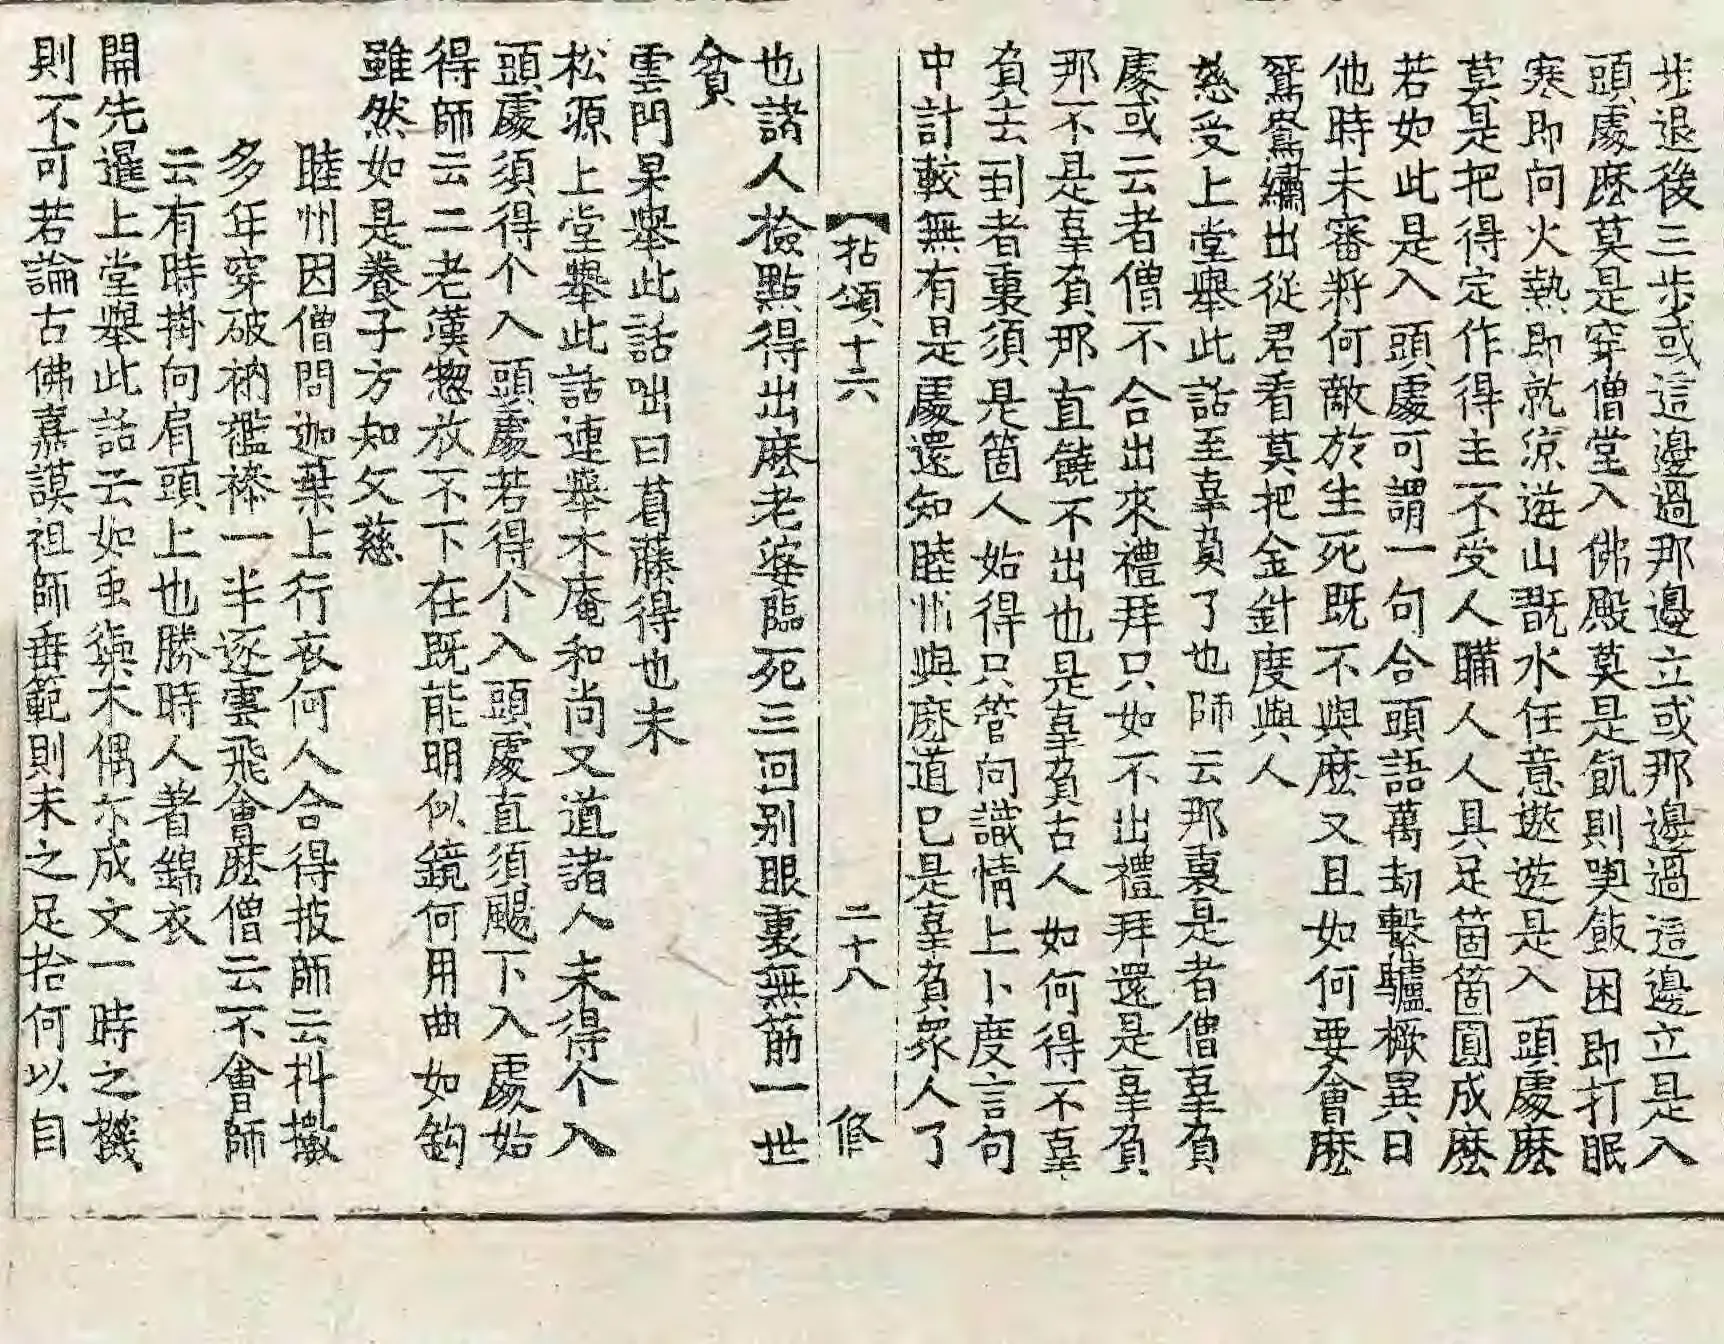 步退後三步或這邊過那邊立或那邊過這邊立是入
頭處麽莫是穿僧堂入佛殿莫是飢則喫飯困即打眠
寒即向火熱即就涼遊山翫水任意遨遊是入頭處麽
莫是把得定作得主不受人瞞人人具足箇箇圓成麽
若如此是入頭處可謂一句合頭語萬劫繫驢橛異日
他時未審將何敵於生死既不與麽又且如何要會麽
鴛鴦繡出從君看莫把金針度與人
慈受上堂擧此話至辜負了也師云那裏是者僧辜負
處或云者僧不合出來禮拜只如不出禮拜還是辜負
那不是辜負那直饒不出也是辜負古人如何得不辜
負去到者裏須是箇人始得只管向識情上卜度言句
中計較無有是處還知睦州與麽道已是辜負衆人了
【拈頌十六 二十八 修
也諸人撿點得出麽老婆臨死三回別眼裏無筋一世
貧
雲門杲擧此話咄曰葛藤得也未
松源上堂擧此話連擧木庵和尚又道諸人未得个入
頭處須得个入頭處若得个入頭處直須颺下入處始
得師云二老漢惣放不下在既能明似鏡何用曲如鉤
雖然如是養子方知父慈
睦州因僧問迦葉上行衣何人合得披師云抖擻
多年穿破衲襤襂一半逐雲飛會麽僧云不會師
云有時掛向肩頭上也勝時人著錦衣
開先暹上堂擧此話云如虫蝕木偶尒成文一時之機
則不可若論古佛嘉謨祖師垂範則未之足拾何以自